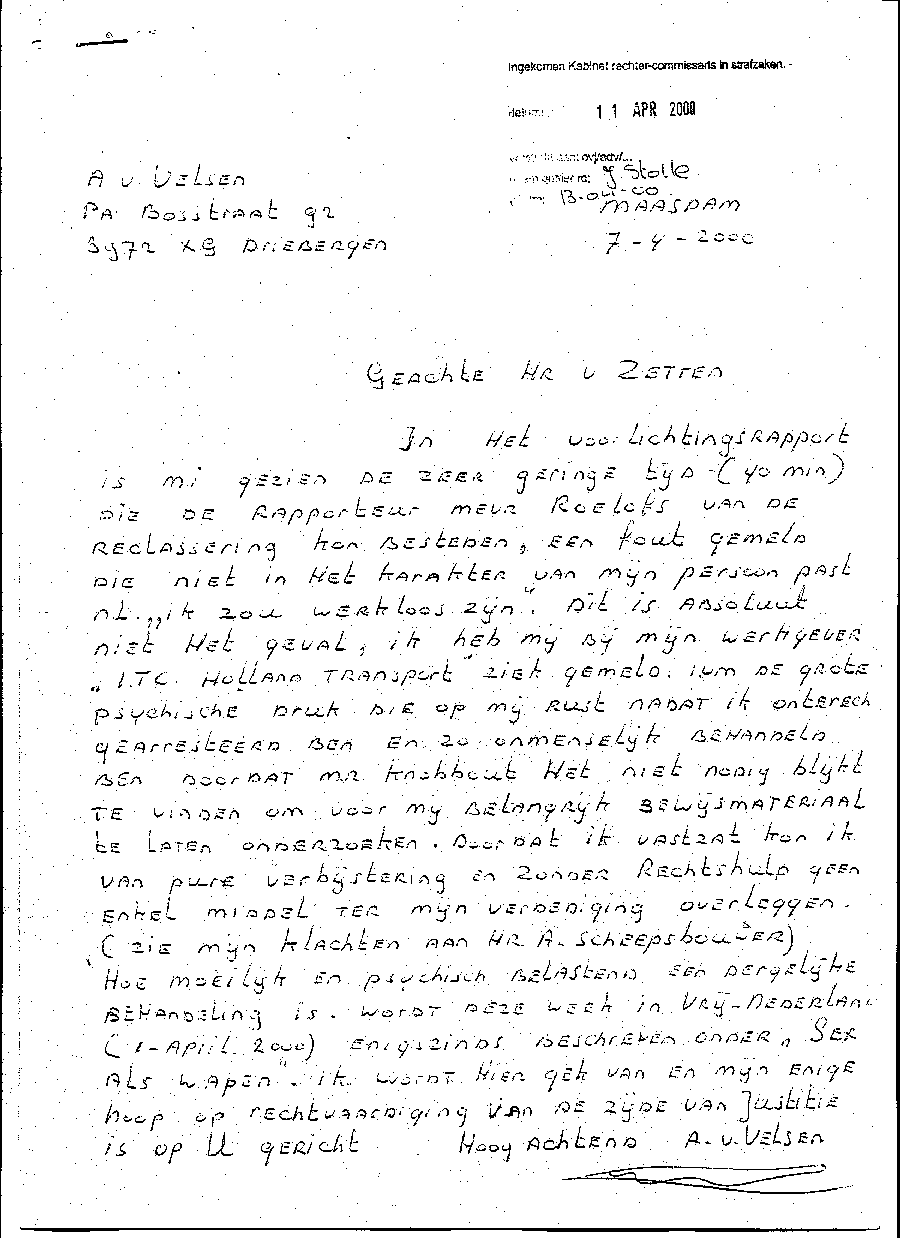 Ingekomen Kabinet rechter-commissaris in strafzaken.
datum:
11 APR 2000
J Stolle
A v. VELSEN
MAASDAM
PA. BOSSTRAAT 92
3972 XG DRIEBERGEN
7-4-2000
GEACHTE HR v ZETTEN
IN HET voorlichtingsRAPPORT
is mi gezien DE ZEER geringe tijd (40 min)
DIE DE RAPPORTEUR MEVR ROELOFS VAN DE
RECLASSERING kon BESTEDEN, EEN fout gemeld
DIE niet in HET KARAKTER van mijn persoon past
nl. „ik zou werkloos zijn". Dit is ABSOLUUT
niet HET geval, ik heb my by mijn werkgever
„I.T.C. Holland TRANSPORT" ziek gemeld. ivm DE grote
psychische Druk DIE op mij rust nadat ik onterech
gearresteerd BEN EN zo onmenselijk BEHANDELD
BEN DOORDAT mr Knobbout HET niet nodig blijkt
TE vinden om voor my BELANGRIJK BEWIJSMATERIAAL
te LATEN ONDERZOEKEN. DOORDAT ik vastzat kon ik
VAN pure verbijstering en zonder Rechtshulp geen
ENKEL middel TER mijn verdediging overleggen.
(zie mijn klachten AAN HR A. Scheepsbouwer)
HOE moeilijk EN psychisch BELASTEND EEN DERGELIJKE
BEHANDELING is. WORDT DEZE WEEK in Vrij-NEDERLAND
(1-April 2000) ENIGSZINDS BESCHREVEN ONDER „SEX
ALS WAPEN". ik WORDT HIER gek van en mijn ENIGE
hoop op rechtvaardiging VAN DE ZIJDE VAN Justitie
is op U gericht HOOG ACHTEND A. v. VELSEN